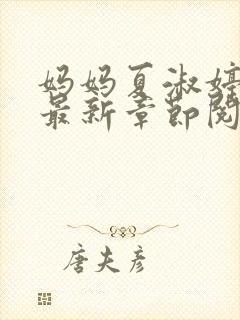 妈妈夏淑婷
最新章节阅
唐夫彦